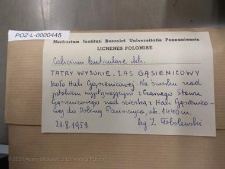 POZ-L-0000445
Herbarium Instituti Botanici Universitatis Posnaniensis
LICHENES POLONIAE
Calicium
TATRY WYSOKIE. LAS GĄSIENICOWY
koło Hali Gąsienicowej. Na świerku nad
potokiem wypływającym z Czarnego Stawu
Gąsienicowego nad ścieżką z Hali Gąsienico-
wej do Doliny Pańszczyca, alt. 1440 m.
21.8.1959 leg. Z. Tobolewski